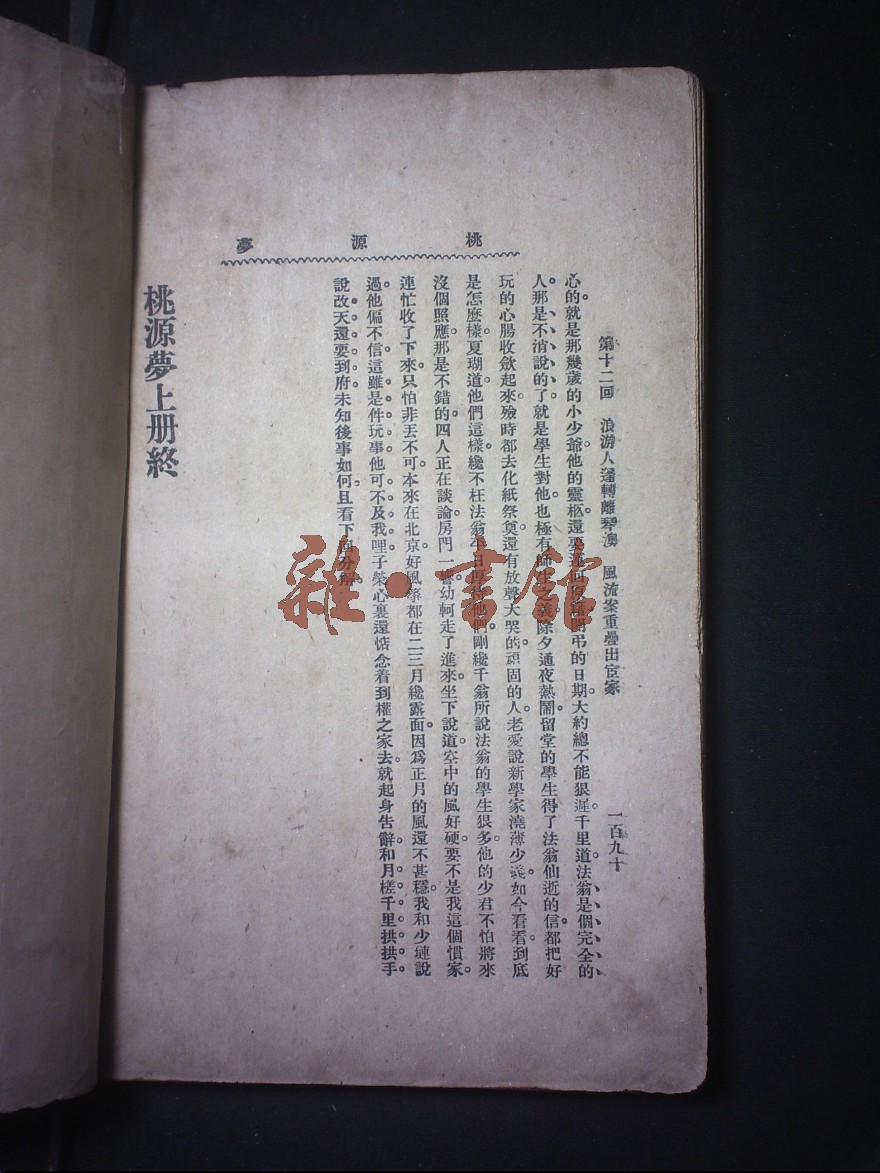 桃源夢
第十二回 浪游人邅轉離琴澳 風流案重疊出宦家 一百九十
心的。就是那幾歲的小少爺他的靈柩還要運回開弔的日期。大約總不能狠遲。千里道。法翁是個完全的
人。那是不消說的了。就是學生對他。也極有師生之義。除夕通夜熱鬧。留堂的學生得了法翁仙逝的信。都把好
玩的心腸收斂起來。殮時都去化紙祭奠。還有放聲大哭的。頑固的人。老愛說新學家澆薄少義。如今看看。到底
是怎麼樣。夏瑚道。他們這樣。纔不枉法翁平日厚待他們。剛纔千翁所說法翁的學生狠多。他的少君不怕將來
沒個照應。那是不錯的。四人正在談論。房門一響。幼軻走了進來。坐下說道。空中的風好硬。要不是我這個慣家。
連忙收了下來。只怕非丟不可。本來在北京好風箏都在二三月纔露面。因爲正月的風還不甚穩。我和少璉說
過。他偏不信。這雖是件玩事。他可不及我哩。子榮心裏還惦念着到權之家去。就起身告辭。和月槎千里拱拱手
說。改天還要到府。未知後事如何。且看下回分解。
桃源夢上册終
雜·書館